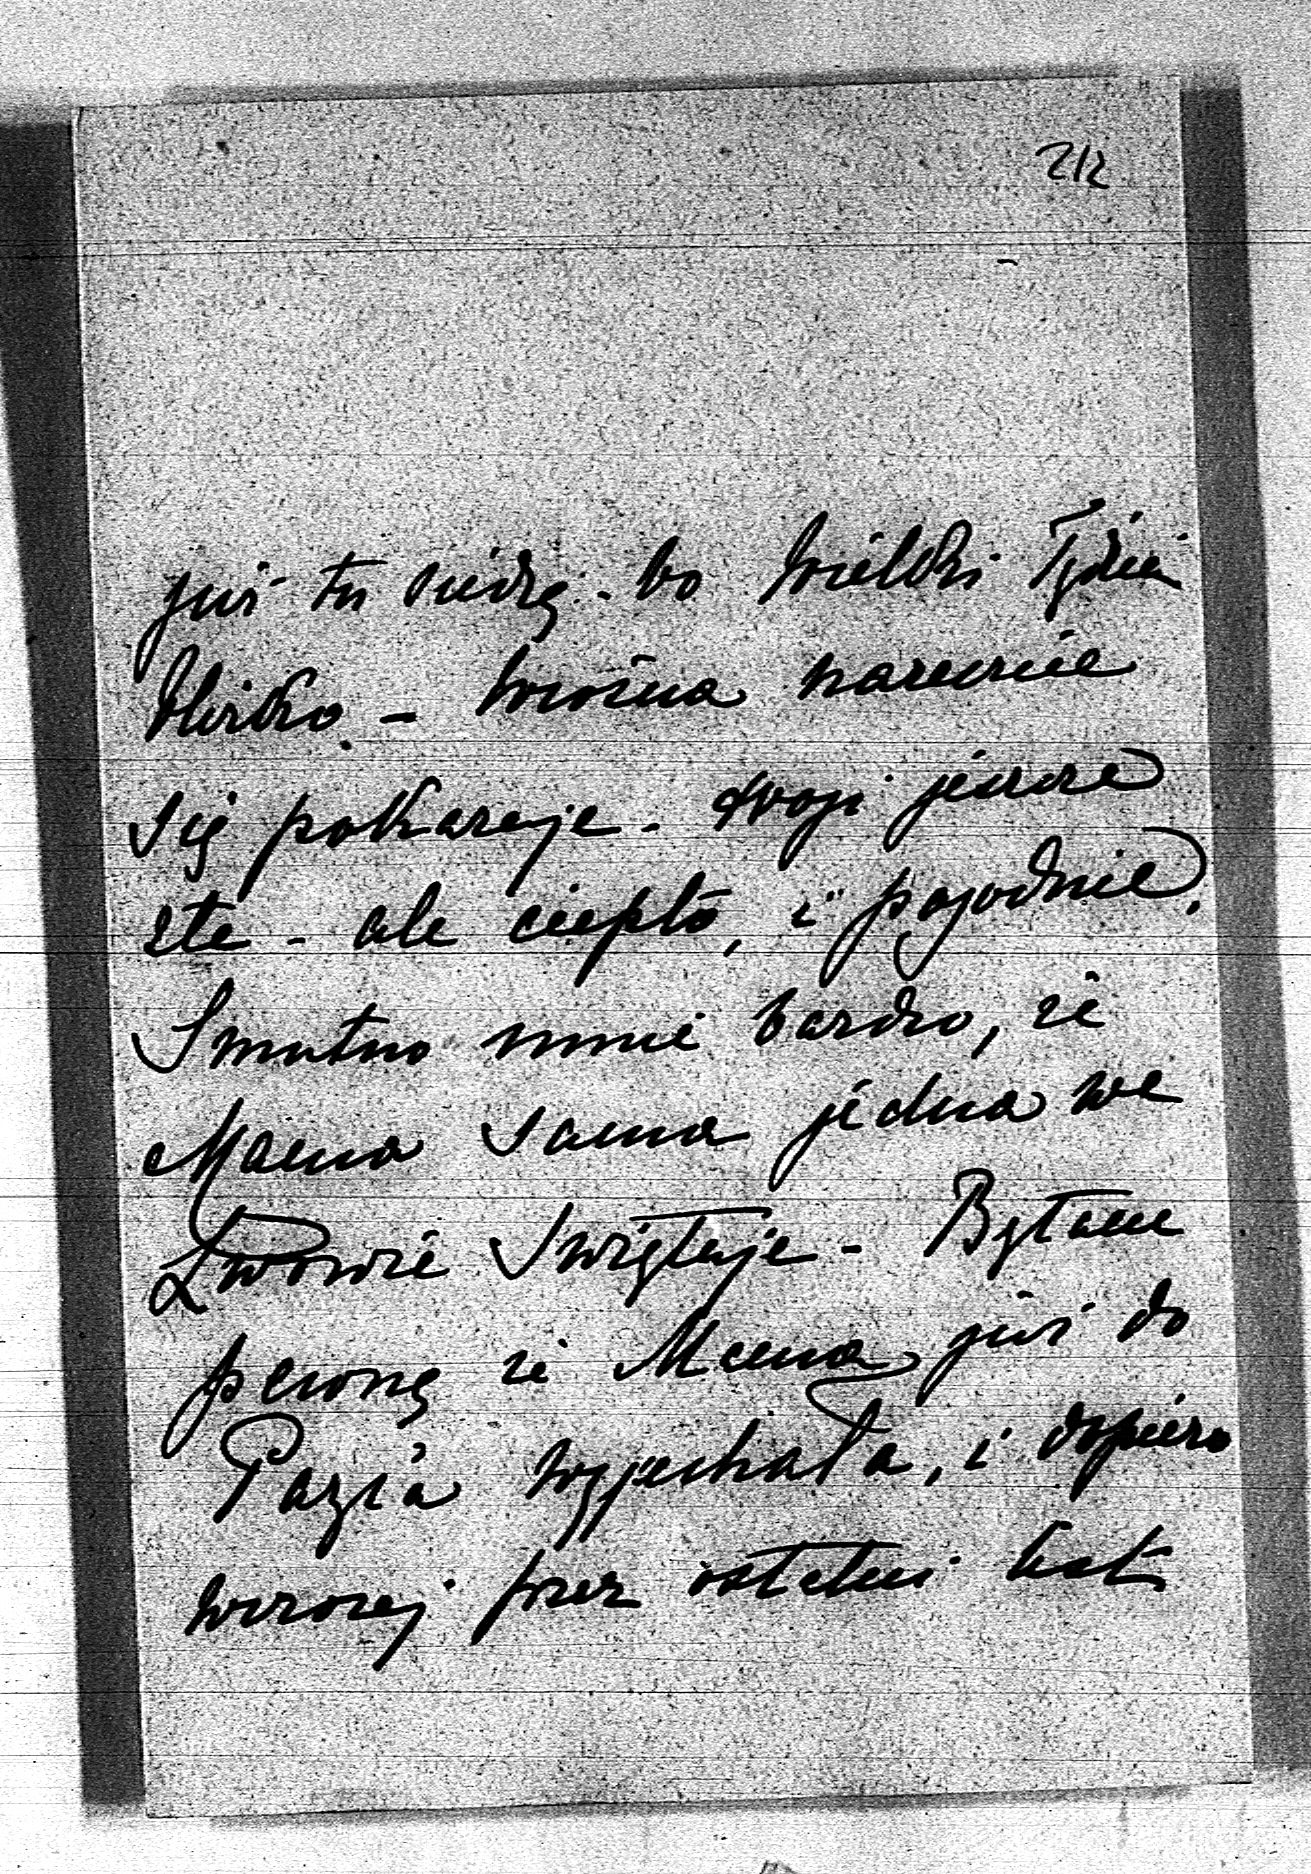 212
już tu siedzę - bo Wielki Tydzień
blizko. - Wiosna nareszcie
się pokazuje - drogi jeszcze
złe - ale ciepło, i pogodnie.
Smutno mnie bardzo, że
Mama sama jedna we
Lwowie Świętuje - Byłam
pewną że Mama już do
Pazia wyjechała, i dopiero
wczoraj przez ostatni list